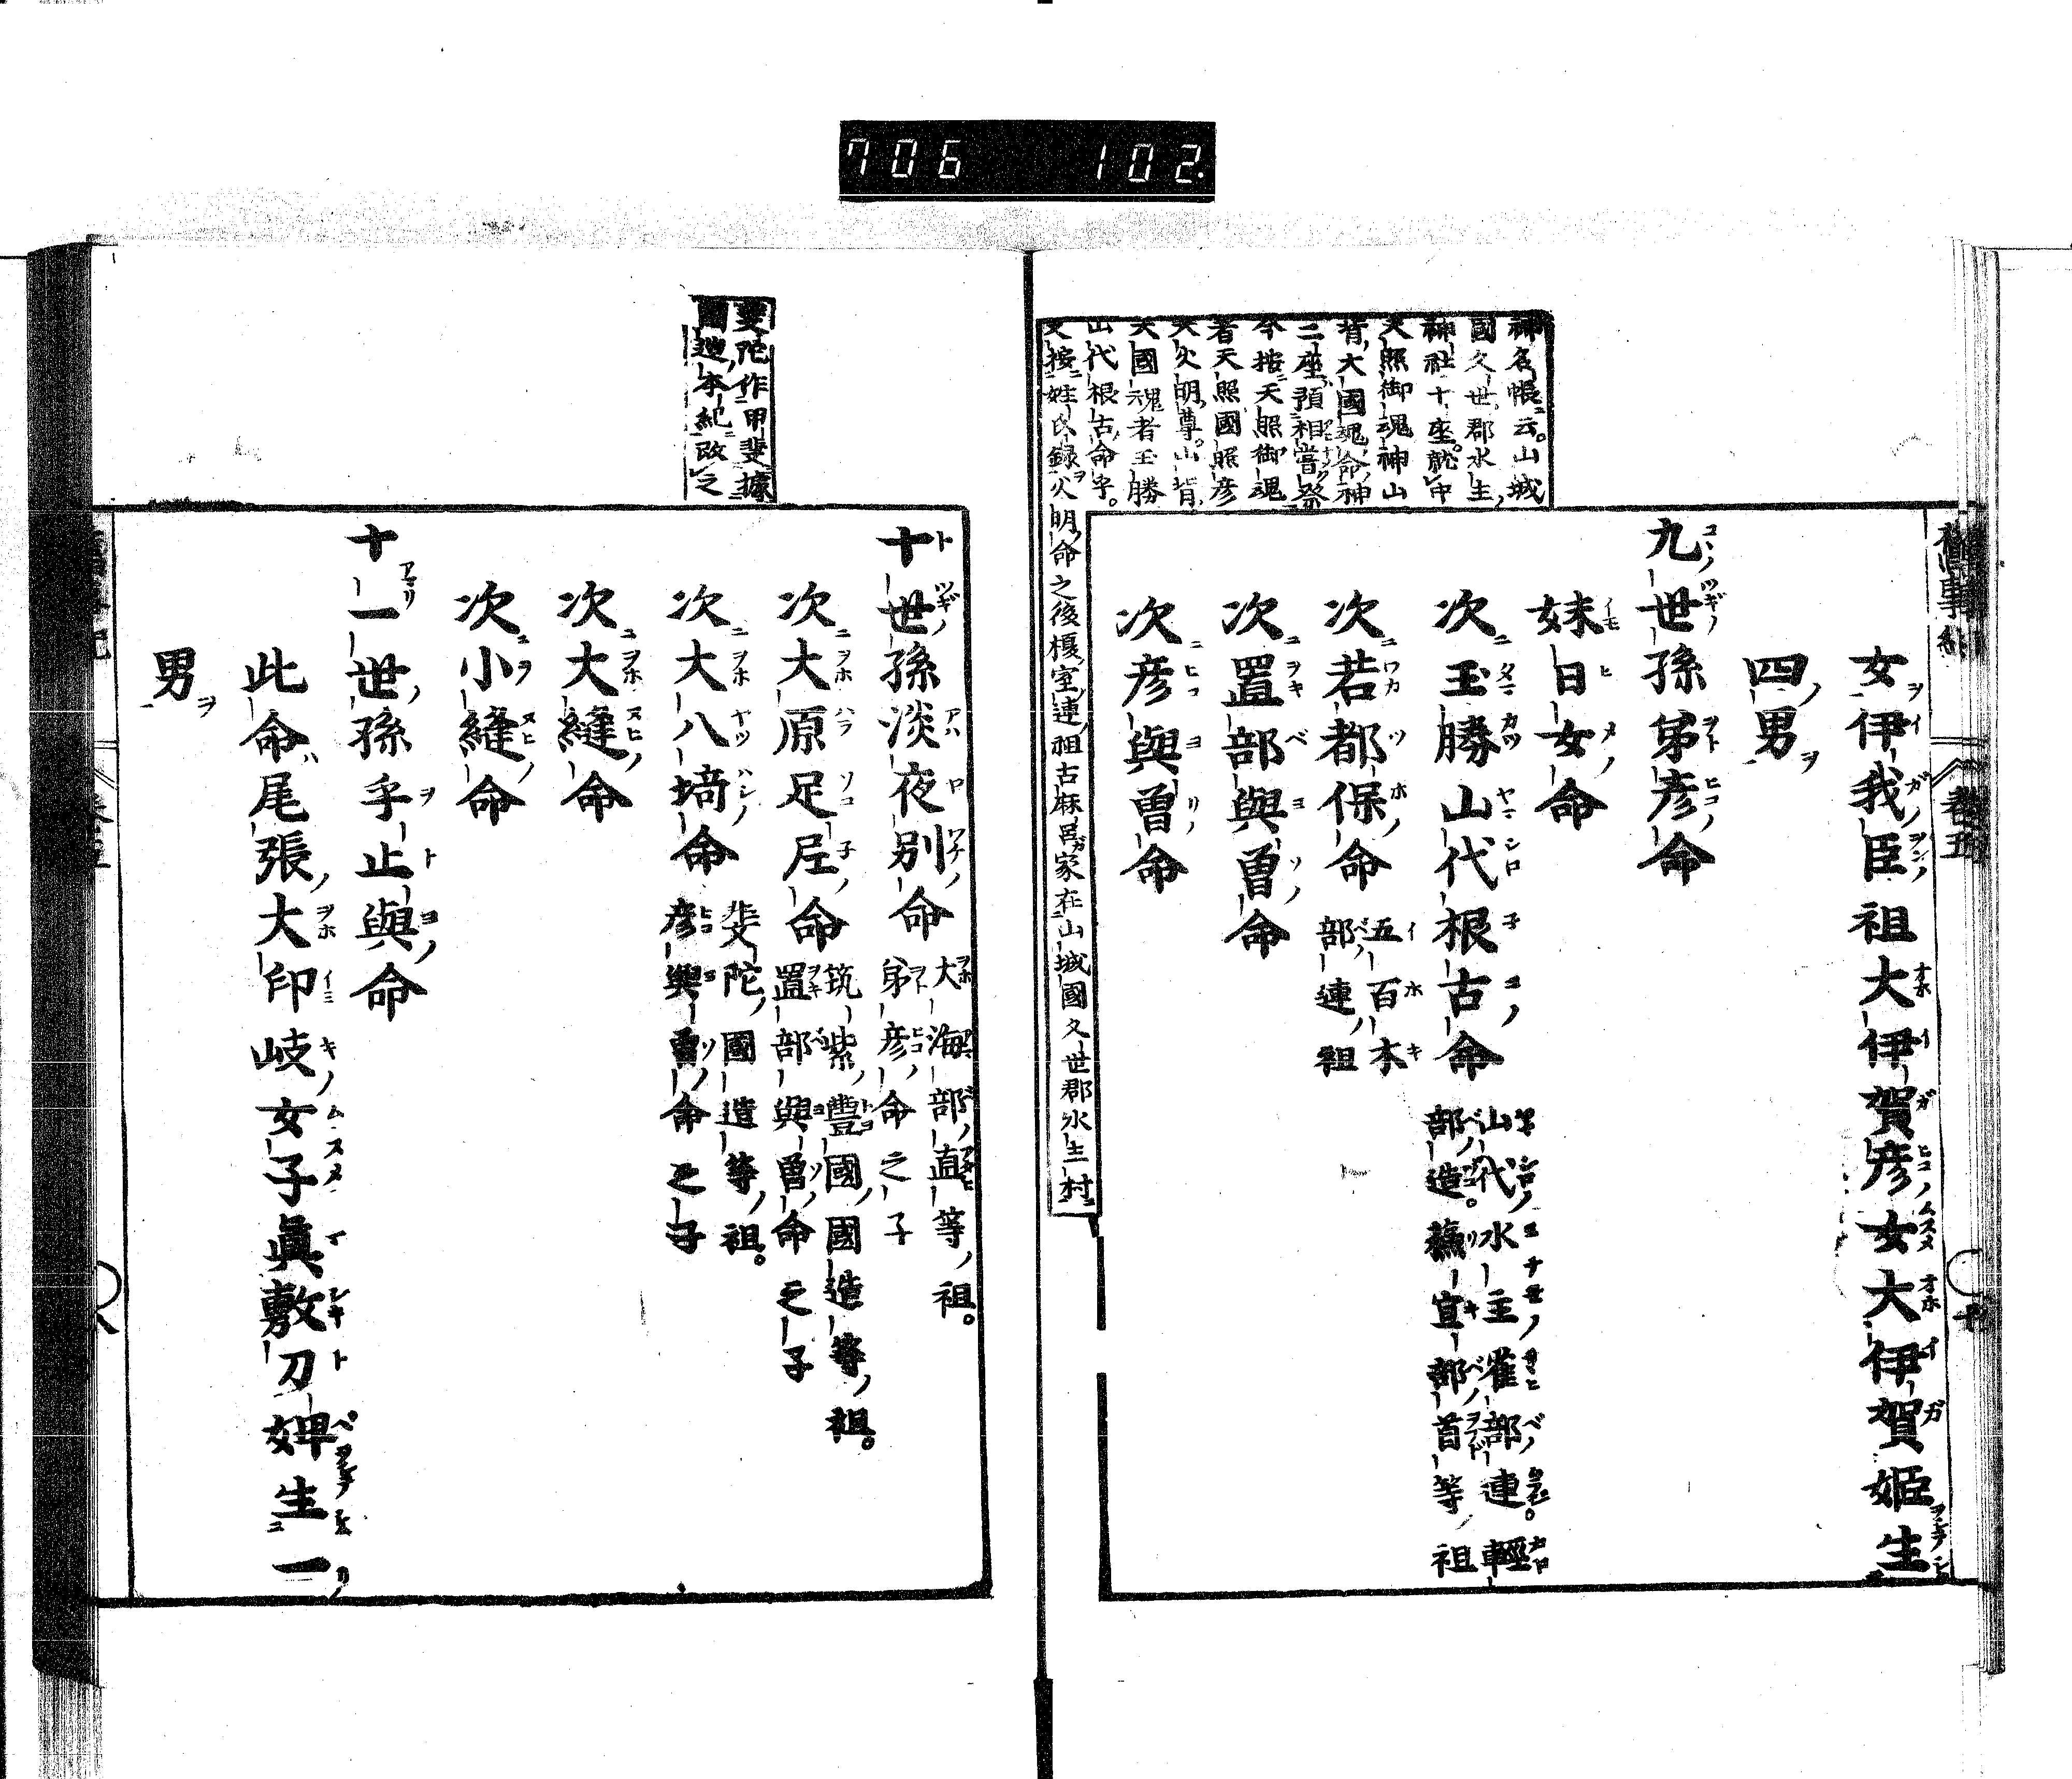 706 102.
神名帳云。山城
國久世郡水主
神社十座。就中
天照御魂神山
背大國魂命神
二座預相嘗祭
今按天照御魂
者天照國照彦
天火明尊。山背
大國魂者玉勝
山代根古命乎。
又按姓氏録火明命之後榎室連祖古麻呂家在山城國久世郡水主村
女伊我臣祖大伊賀彦女大伊賀姫生
四男
九世孫弟彦命
妹日女命
次玉勝山代根古命 山代水主雀部連。輕
部造。蘓宜部首等祖
次若都保命 五百木
部連祖
次置部與曽命
次彦與曽命
斐陀作甲斐據
國造本紀改之
十世孫淡夜別命 大海部直等祖。
弟彦命之子
次大原足尼命 筑紫豐國國造等祖。
置部與曽命之子
次大八埼命 斐陀國造等祖。
彦與曽命之子
次大縫命
次小縫命
十一世孫乎止與命
此命尾張大印岐女子眞敷刀婢生一
男